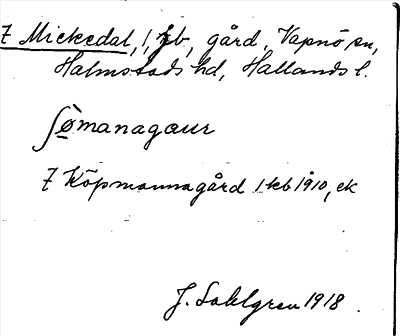 7 Mickedal, 1, jb, gård, Vapnö sn,
Halmstads hd, Hallands l.
ʃömanagaur
7 Köpmannagård 1 kb 1910, ek
J. Sahlgren 1918.